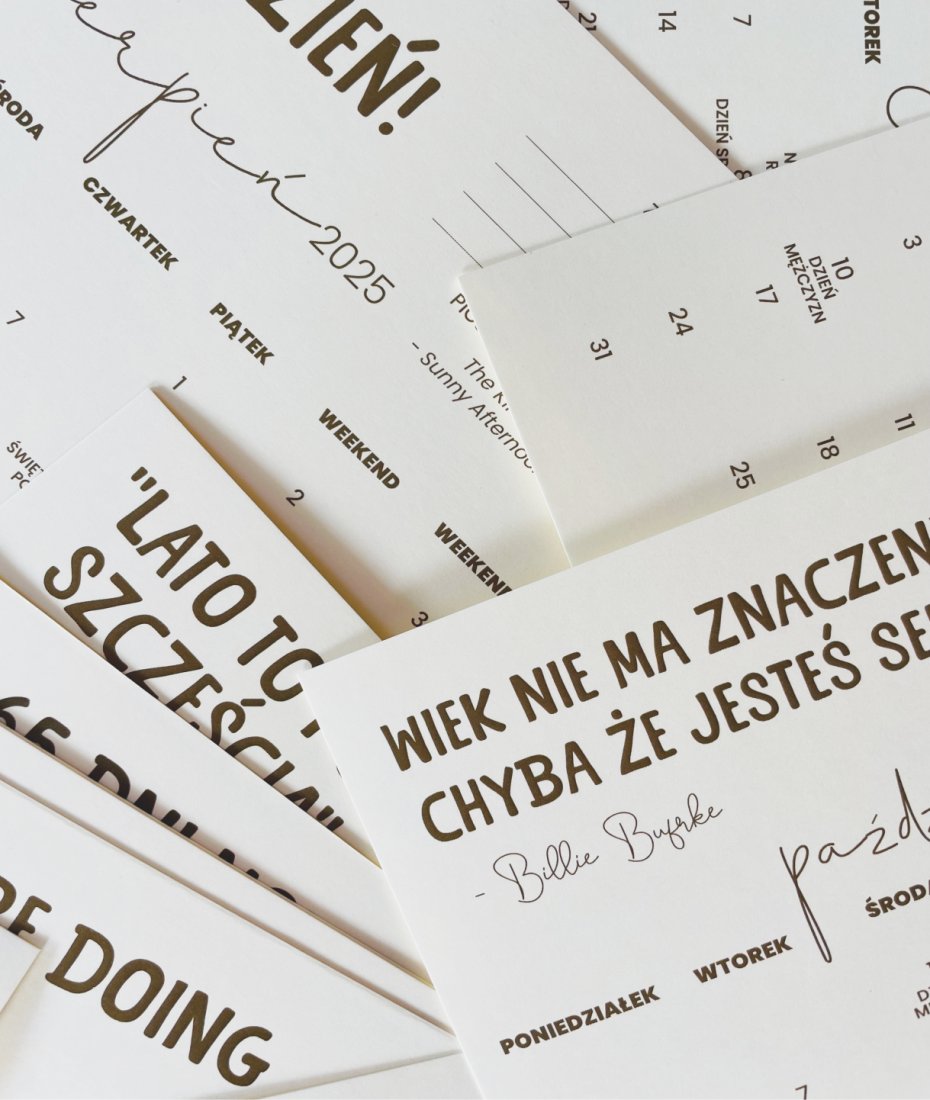 ZIEŃ!
erpień 2025
ŚRODA
CZWARTEK
PIĄTEK
WEEKEND
WEEKEND
7
1
2
3
The
- Sunny Afternoo
21
14
7
WTOREK
DZIEŃ
3
10
DZIEŃ
MĘŻCZYZN
17
24
31
11
18
25
"LATO TO
SZCZĘŚCIA"
65 DNI
DOING
WIEK NIE MA ZNACZEN
CHYBA ŻE JESTEŚ SE
- Billie Bufrke
paźdz
PONIEDZIAŁEK
WTOREK
ŚRODA
7